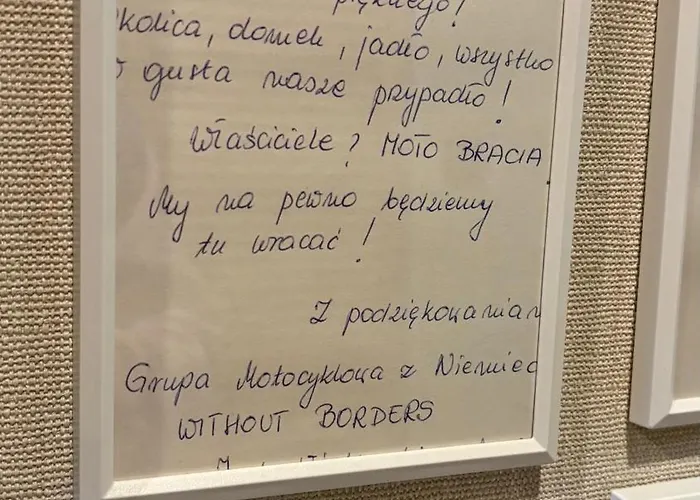 pięknego!
okolica, domek, jadło, wszystko
w gusta nasze przypadło!
Właściciele? MOTO BRACIA
My na pewno będziemy
tu wracać!
Z podziękowaniam
Grupa Motocyklowa z Niemiec
WITHOUT BORDERS